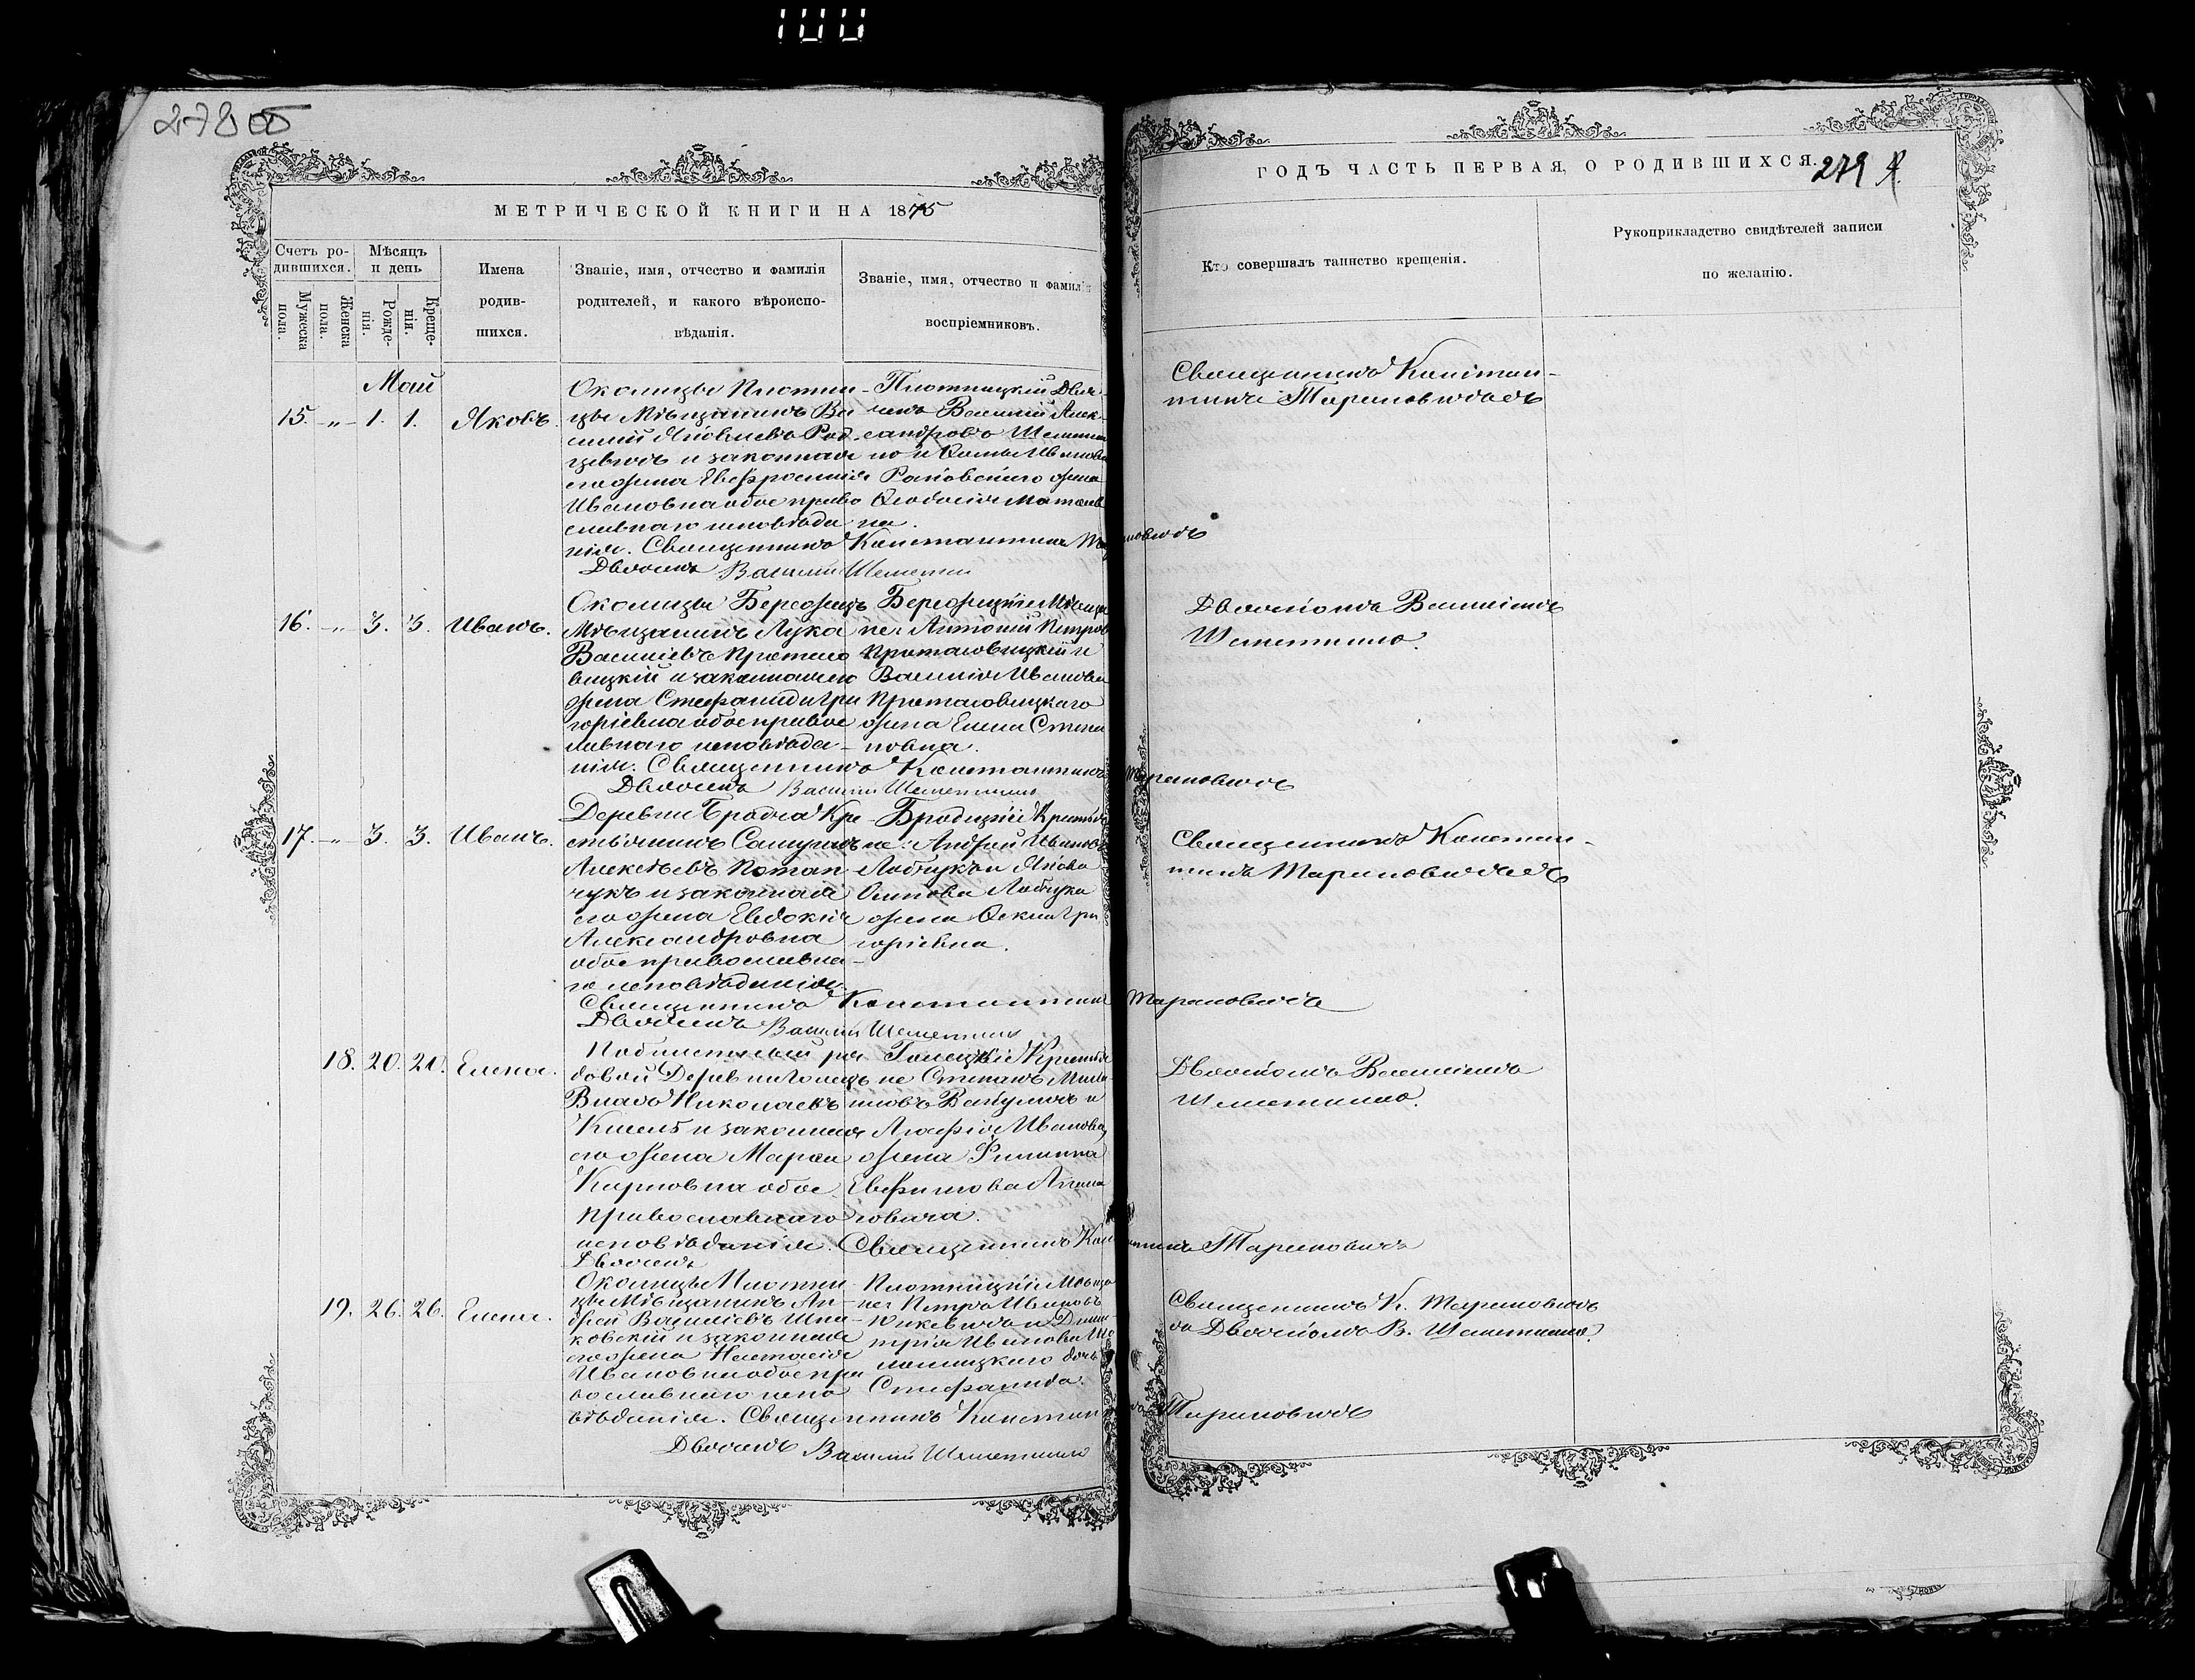 100
278 об
МЕТРИЧЕСКОЙ КНИГИ НА 1875
ГОДЪ ЧАСТЬ ПЕРВАЯ, О РОДИВШИХСЯ.
279
Счетъ ро-
дившихся.
Мужеска
пола.
Женска
пола.
Мѣсяцъ
и день
Рожде-
нія.
Креще-
нія.
Имена
родив-
шихся.
Званіе, имя, отчество и фамилія
родителей, и какого вѣроиспо-
вѣданія.
Званіе, имя, отчество и фамилія
воспріемниковъ.
Кто совершалъ таинство крещенія.
Рукоприкладство свидѣтелей записи
по желанію.
Май
15. - „ - 1. 1. Яковъ.
Околицы Плотни-
цы Мѣщанинъ Ва
силий Яковлевъ
и законная
его жена Евфросинія
Ивановна обое право
славнаго исповѣда
нія. Священникъ Константинъ Тарановичъ
Дьячекъ Василий Шеметило
Плотницкій Дья-
чекъ Василий Алек-
сандровъ Шемети
ло и Ивано
жена
Ѳеодосія
на.
Священникъ Констан-
тинъ Тарановичъ
16. - „ 3. 3. Иванъ.
Околицы Бережцъ
Мѣщанинъ Лука
Василіевъ Протасо
вицкій и законная его
жена Стефанида Гри
горіевна обое право
славнаго исповѣда-
нія. Священникъ Константинъ Тарановичъ
Дьячекъ Василий Шеметило
Бережицкіе Мѣща
не: Антоній Петров
Протасовицкій и
Василія Иванова
Протасовицкаго
жена Елена Степа
новна.
Дьячкомъ Василіемъ
Шеметило.
17. - „ - 3. 3. Иванъ.
Деревни Бродча Кре-
стьянинъ Самуилъ
Алексѣевъ Потап
чукъ и законная
его жена Евдокія
Александровна
обое православна-
го исповѣданія.
Священникъ Константинъ Тарановичъ
Дьячекъ Василий Шеметило
Бродецкіе Крестья
не: Андрей Ивановъ
Лобчукъ и Якова
Осипова Лобчука
жена Гри
горіевна.
Священникъ Констан-
тинъ Тарановичъ
18. 20. 20. Елена.
довой Деревни Гонецъ
Власъ Николаевъ
Кисель и законная
его жена Марія
Карповна обое
православнаго
исповѣданія. Священникъ Константинъ Тарановичъ
Дьячекъ
Крестья
не Степанъ
и
Агафія Иванова
жена Филиппа
Евфимова
Дьячкомъ Василіемъ
Шеметило.
19. 26. 26. Елена.
Околицы Плотни
цы Мѣщанинъ Ан-
дрей Василіевъ Шпа-
ковскій и законная
его жена Настасія
Ивановна обое пра
вославнаго испо
вѣданія. Священникъ Константинъ Тарановичъ
Дьячекъ Василий Шеметило
Плотницкіе Мѣща
не: Петръ Ивановъ
и Дими
трія Иванова
дочь
Стефанида.
Священникъ К. Тарановичъ
съ Дьячкомъ В. Шеметило.